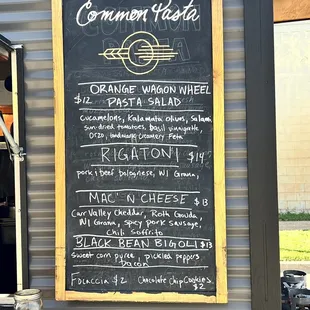 Common Pasta
ORANGE WAGON WHEEL
$12 PASTA SALAD
cucamelons, Kalamata olives, salami,
sun-dried tomatoes, basil vinaigrette,
Orzo, landmark creamery Feta
RIGATONI $14
pork & beef bolognese, WI Grana,
MAC' N CHEESE $13
Carr Valley Cheddar, Roth Gouda,
WI Grana, spicy pork sausage,
chili Soffrito
BLACK BEAN BIGOLI $13
Sweet corn puree, pickled peppers
bacon
Focaccia $2 Chocolate Chip Cookies
$2